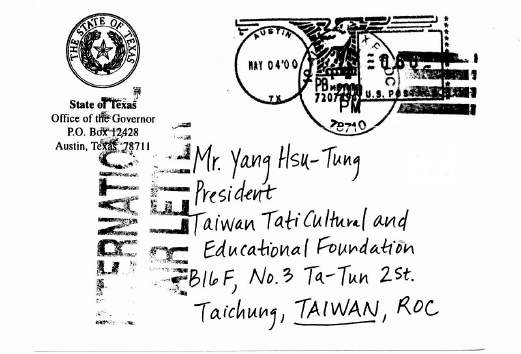 THE STATE OF TEXAS
State of Texas
Office of the Governor
P.O. Box 12428
Austin, Texas 78711
INTERNATIONAL
AIR LETTER
AUSTIN
MAY 04'00
TX
PM
78710
U.S. POSTAGE
Mr. Yang Hsu-Tung
President
Taiwan Tati Cultural and
Educational Foundation
B16F, No.3 Ta-Tun 2St.
Taichung, TAIWAN, ROC